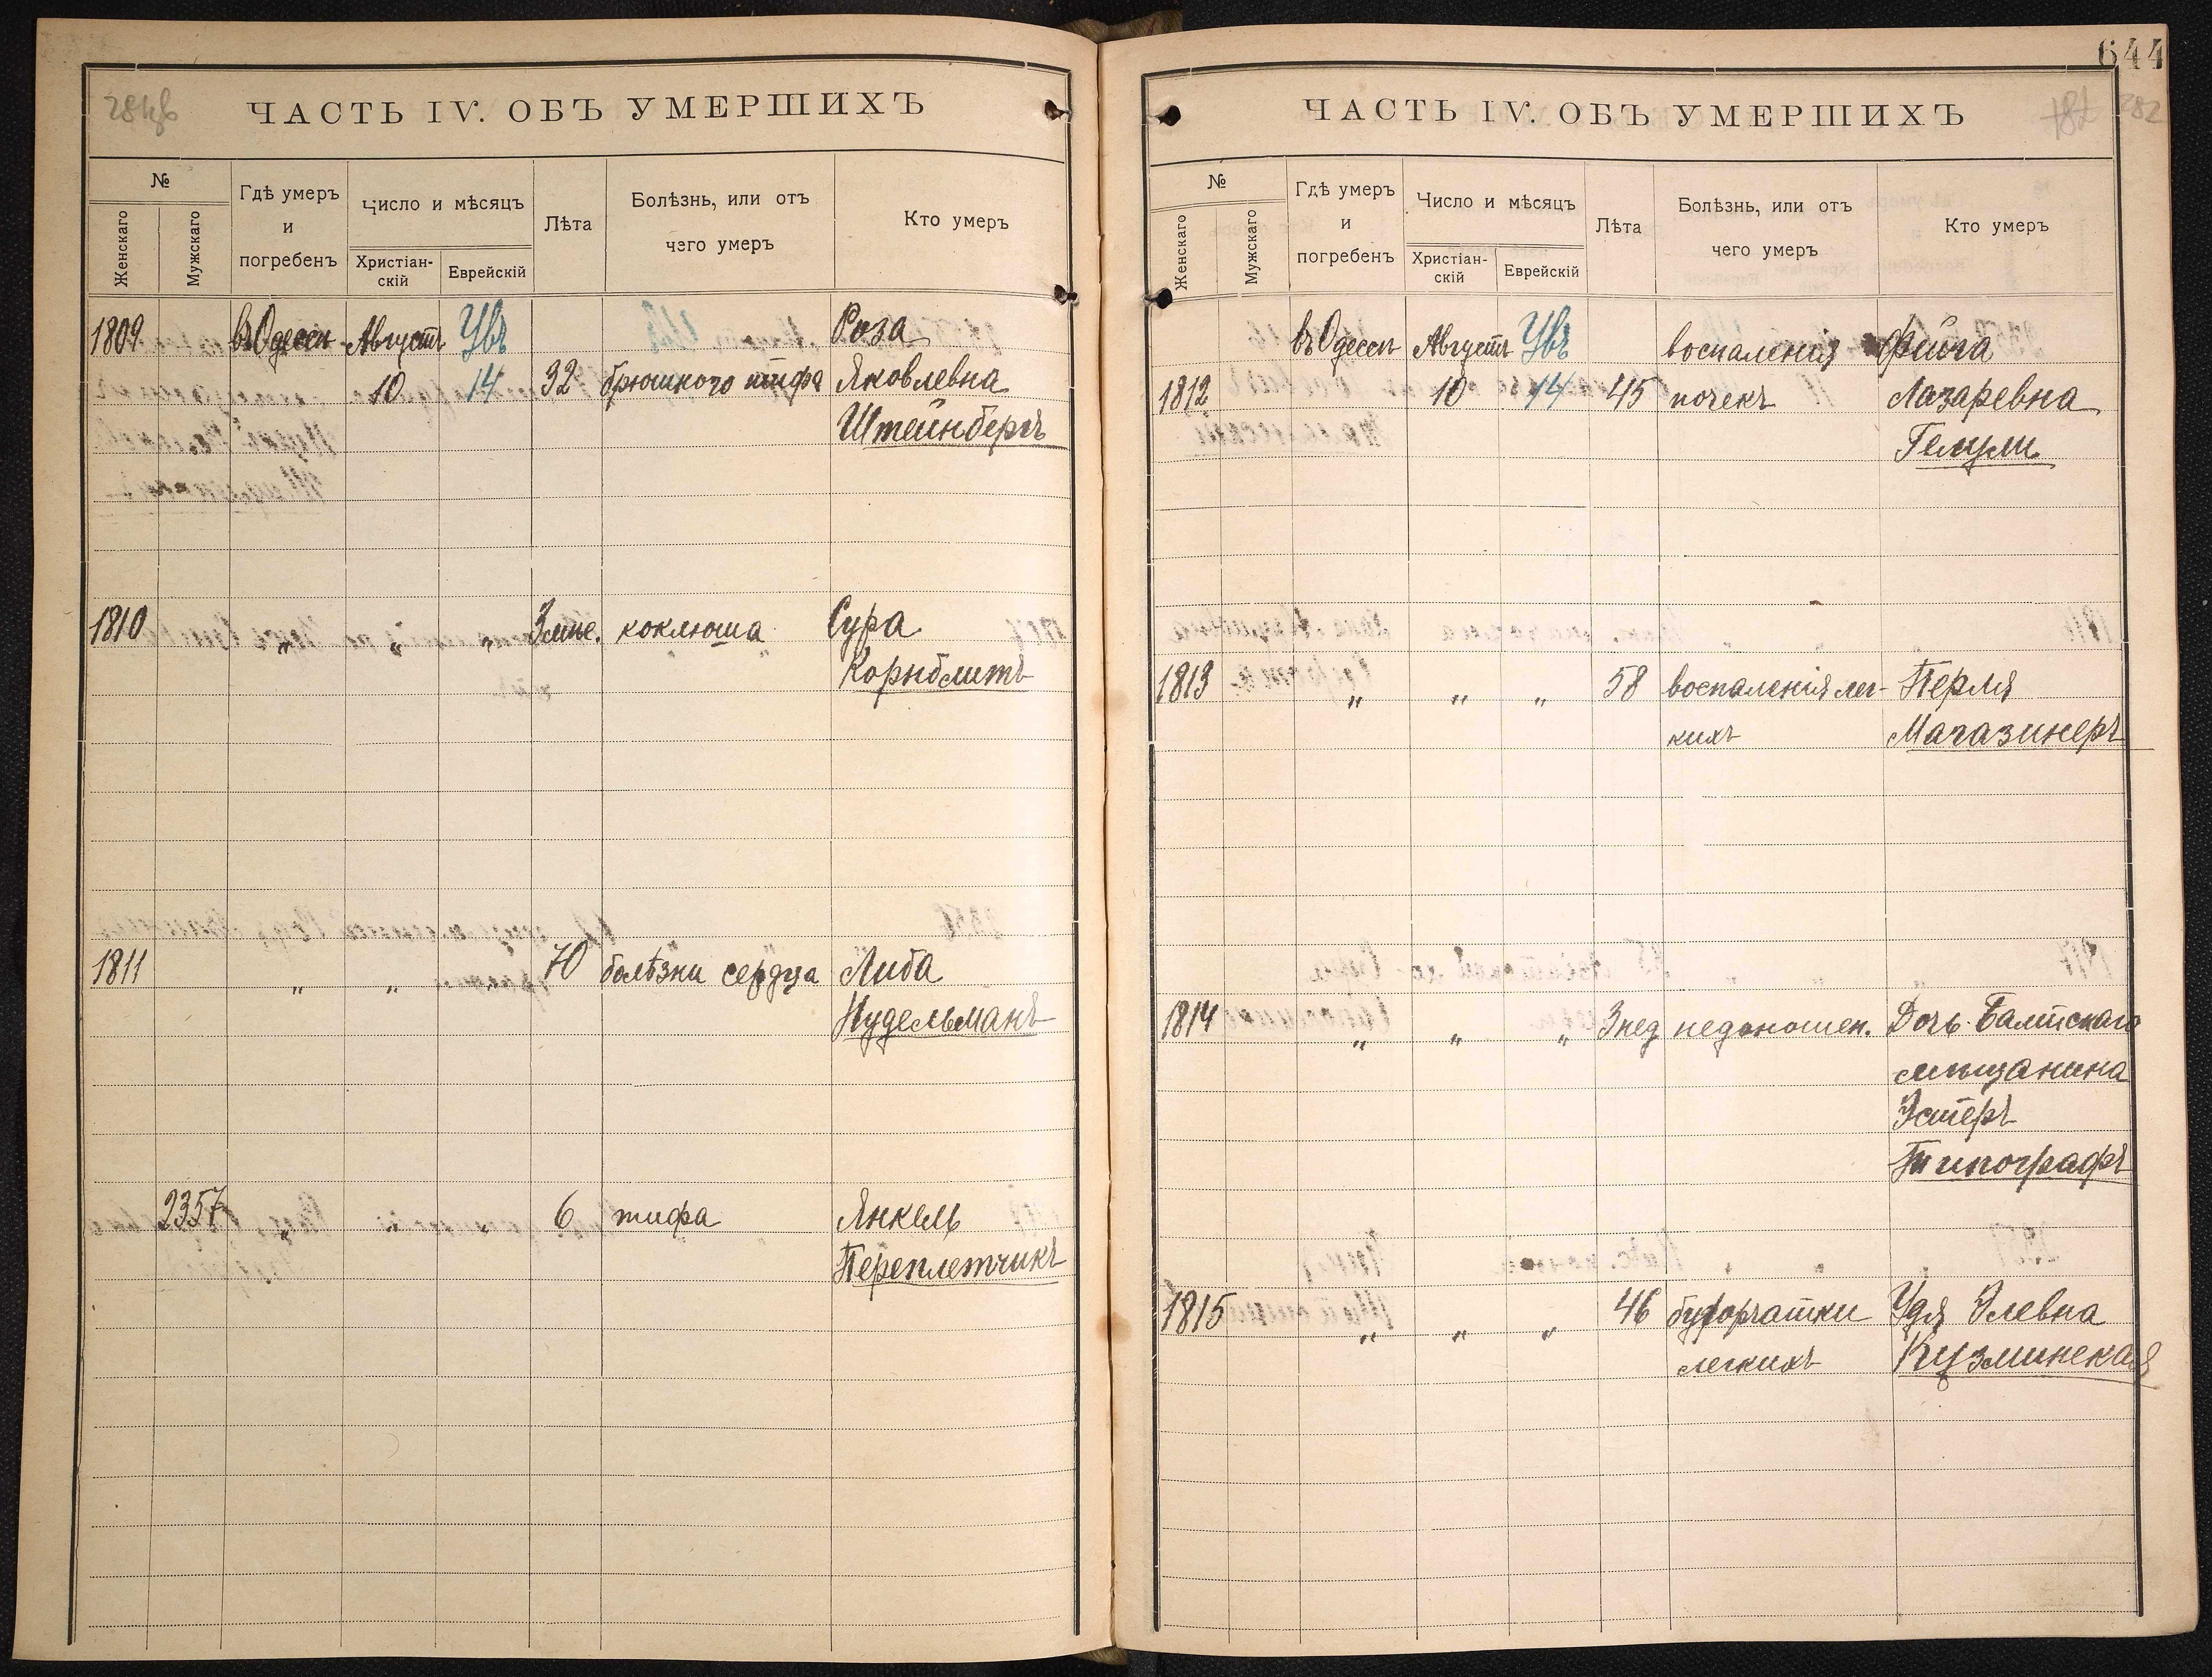 ЧАСТЬ IV. ОБЪ УМЕРШИХЪ
№
Женскаго
Мужскаго
Гдѣ умеръ
и
погребенъ
Число и мѣсяцъ
Христіан-
скій
Еврейскій
Лѣта
Болѣзнь, или отъ
чего умеръ
Кто умеръ
1809 въ Одессѣ Августъ Увъ Роза
10 14 32 брюшного тифа Яковлевна
Штейнбергъ
1810 „ „ „ 3 мѣс. коклюша Сура
Корнблитъ
1811 „ „ 70 болѣзни сердца Либа
Нудельманъ
2357 „ „ 6 тифа Янкель
Переплетчикъ
644
ЧАСТЬ IV. ОБЪ УМЕРШИХЪ
282
№
Женскаго
Мужскаго
Гдѣ умеръ
и
погребенъ
Число и мѣсяцъ
Христіан-
скій
Еврейскій
Лѣта
Болѣзнь, или отъ
чего умеръ
Кто умеръ
въ Одессѣ Августъ Увъ воспаленія Фейга
1812 10 14 45 почекъ Лазаревна
1813 „ „ „ 58 воспаленія лег- Перля
кихъ Магазинеръ
1814 „ „ „ 3 нед недоношен. Дочь Балтскаго
мѣщанина
Эстеръ
Типографъ
1815 „ „ „ 46 бугорчатки Удя Элевна
легкихъ Кузминская